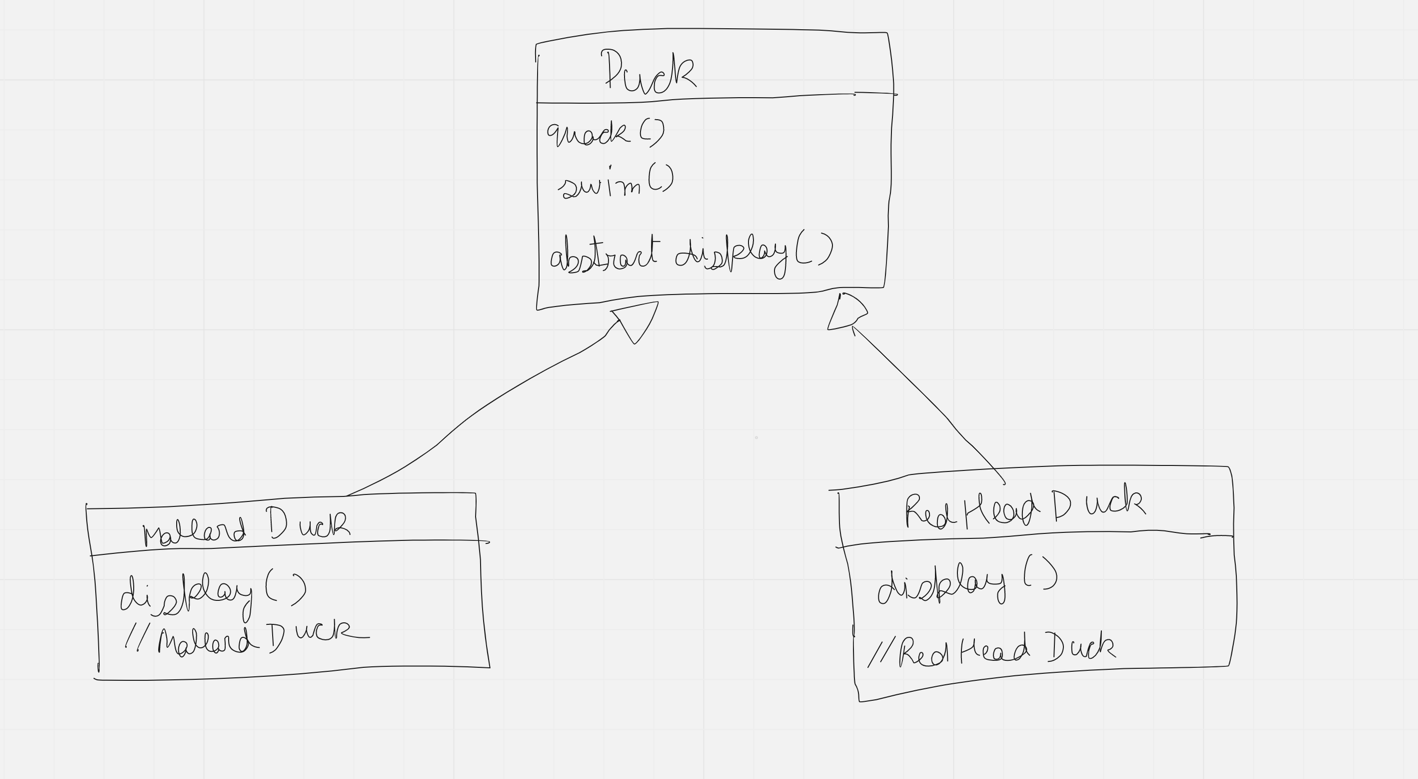 Duck
quack()
swim()
abstract display()
Mallard Duck
display()
//Mallard Duck
RedHead Duck
display()
//RedHead Duck